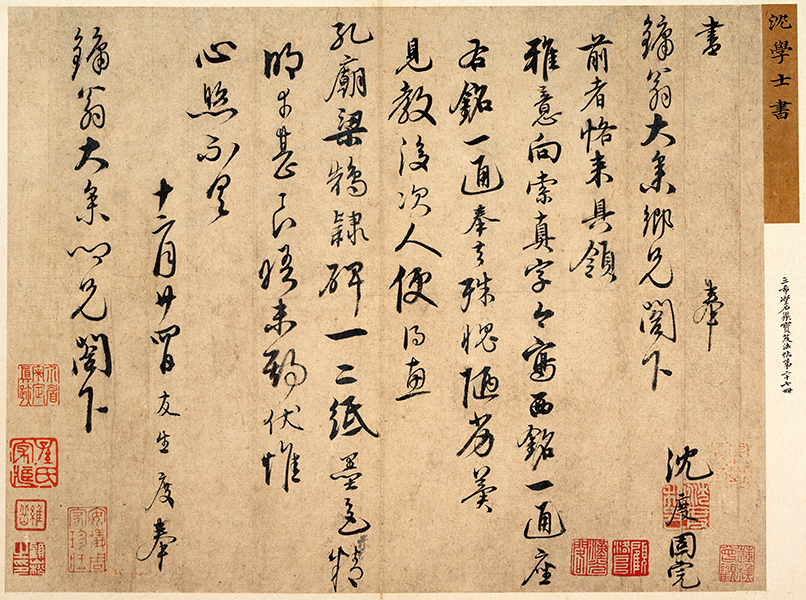 沈學士書
三希堂石渠寶笈法帖第二十七冊
書 奉
沈度固完
鏞翁大參鄉兄閣下
前者恪来具領
雅意向索真字今寫西銘一通座
右銘一通奉去殊愧陋劣冀
見教後次人便得惠
孔廟梁鵠隷碑一二紙墨色精
明幸甚良晤未期伏惟
心照不具
十二月廿四日友生度奉
鏞翁大參鄉兄閣下